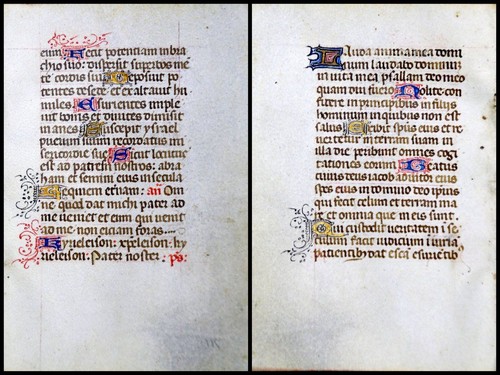 eum. Fecit potentiam in bra
chio suo: dispersit superbos me
te cordis sui. Deposuit po
tentes de sede: et exaltauit hu
miles. Esurientes imple
uit bonis: et diuites dimisit
inanes. Suscepit ysrael
puerum suum recordatus mi
sericordie sue. Sicut locutus
est ad patrem nostros: abra
ham et semini eius in secula
Requiem eternam. an Om
ne quod dat michi pater ad
me ueniet et eum qui uenit
ad me non eiciam foras.
Kyrieleison. xpeleison. ky
rieleison. Pater noster. ps.
Lauda anima mea domi
num laudabo dominum
in uita mea psallam deo meo
quam diu fuero. Nolite con
fidere in principibus in filiis
hominum in quibus non est
salus. Exibit spus eius et re
uertetur in terram suam in
illa die peribunt omnes cogi
tationes eorum. Beatus
cuius deus iacob adiutor eius
spes eius in domino deo ipsius
qui fecit celum et terram ma
re et omnia que in eis sunt.
Qui custodit ueritatem in se
culum facit iudicium iniuria
patientibus dat escam esurientib